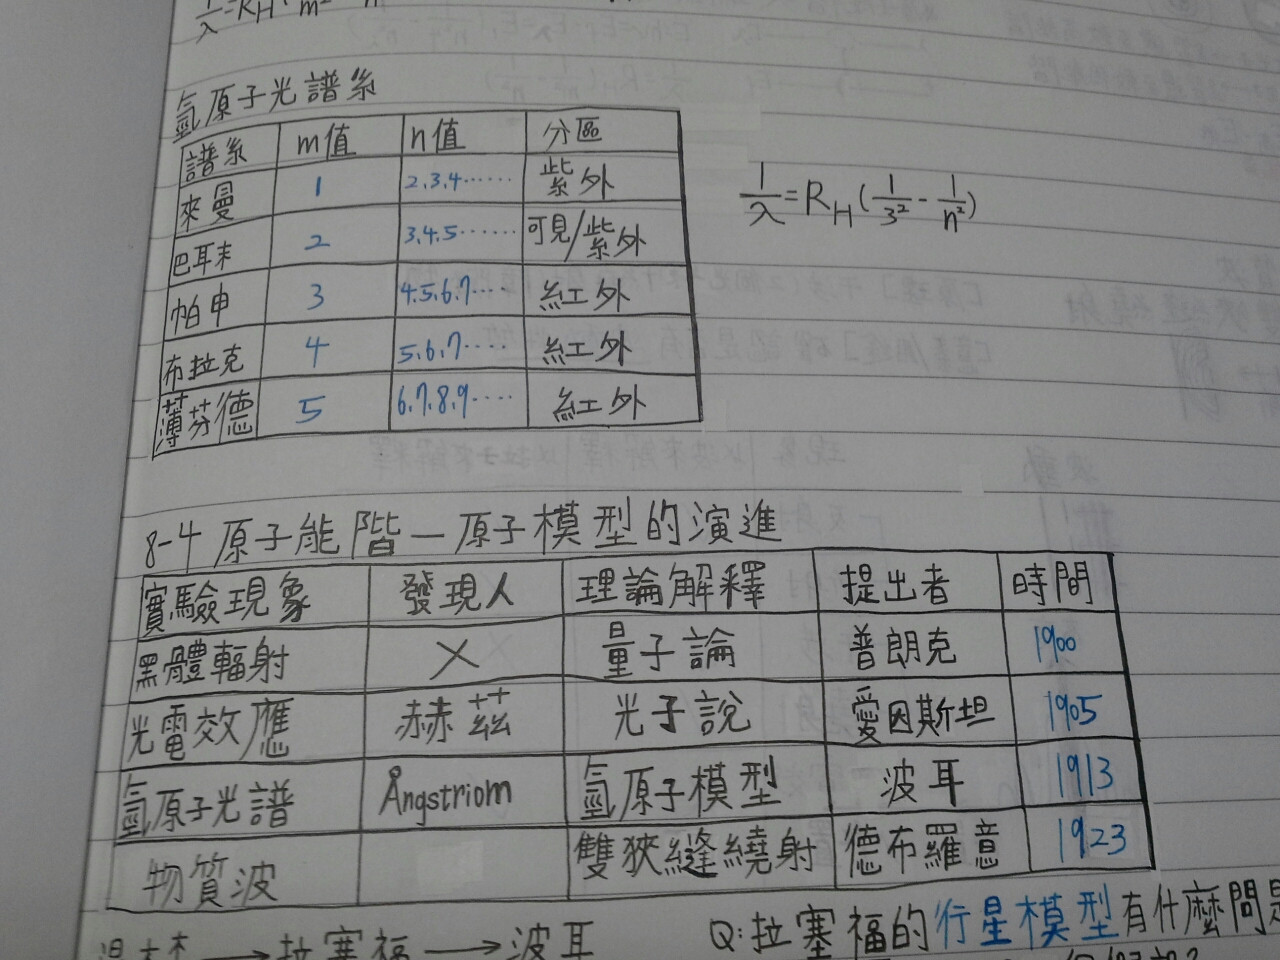 1/λ=RH(
氫原子光譜系
譜系 m值 n值 分區
來曼 1 2.3.4…… 紫外
巴耳末 2 3.4.5…… 可見/紫外
帕申 3 4.5.6.7…. 紅外
布拉克 4 5.6.7…… 紅外
薄芬德 5 6.7.8.9…. 紅外
1/λ=RH(1/3²-1/n²)
8-4 原子能階—原子模型的演進
實驗現象 發現人 理論解釋 提出者 時間
黑體輻射 X 量子論 普朗克 1900
光電效應 赫茲 光子說 愛因斯坦 1905
氫原子光譜 Ångstriom 氫原子模型 波耳 1913
物質波 雙狹縫繞射 德布羅意 1923
→拉塞福→波耳
Q:拉塞福的行星模型有什麼問